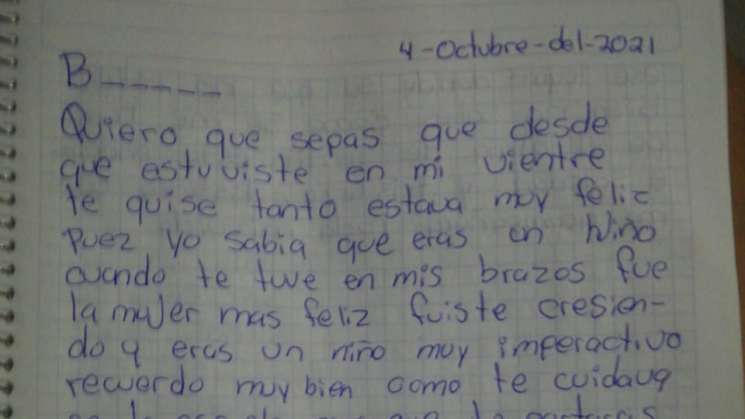 4-Octubre-del-2021
B_____
Quiero que sepas que desde
que estuviste en mi vientre
te quise tanto estava muy feliz
Puez yo sabia que eras un Niño
cuando te tuve en mis brazos fue
la mujer mas feliz fuiste cresien-
do y eras un niño muy imperactivo
recuerdo muy bien como te cuidava